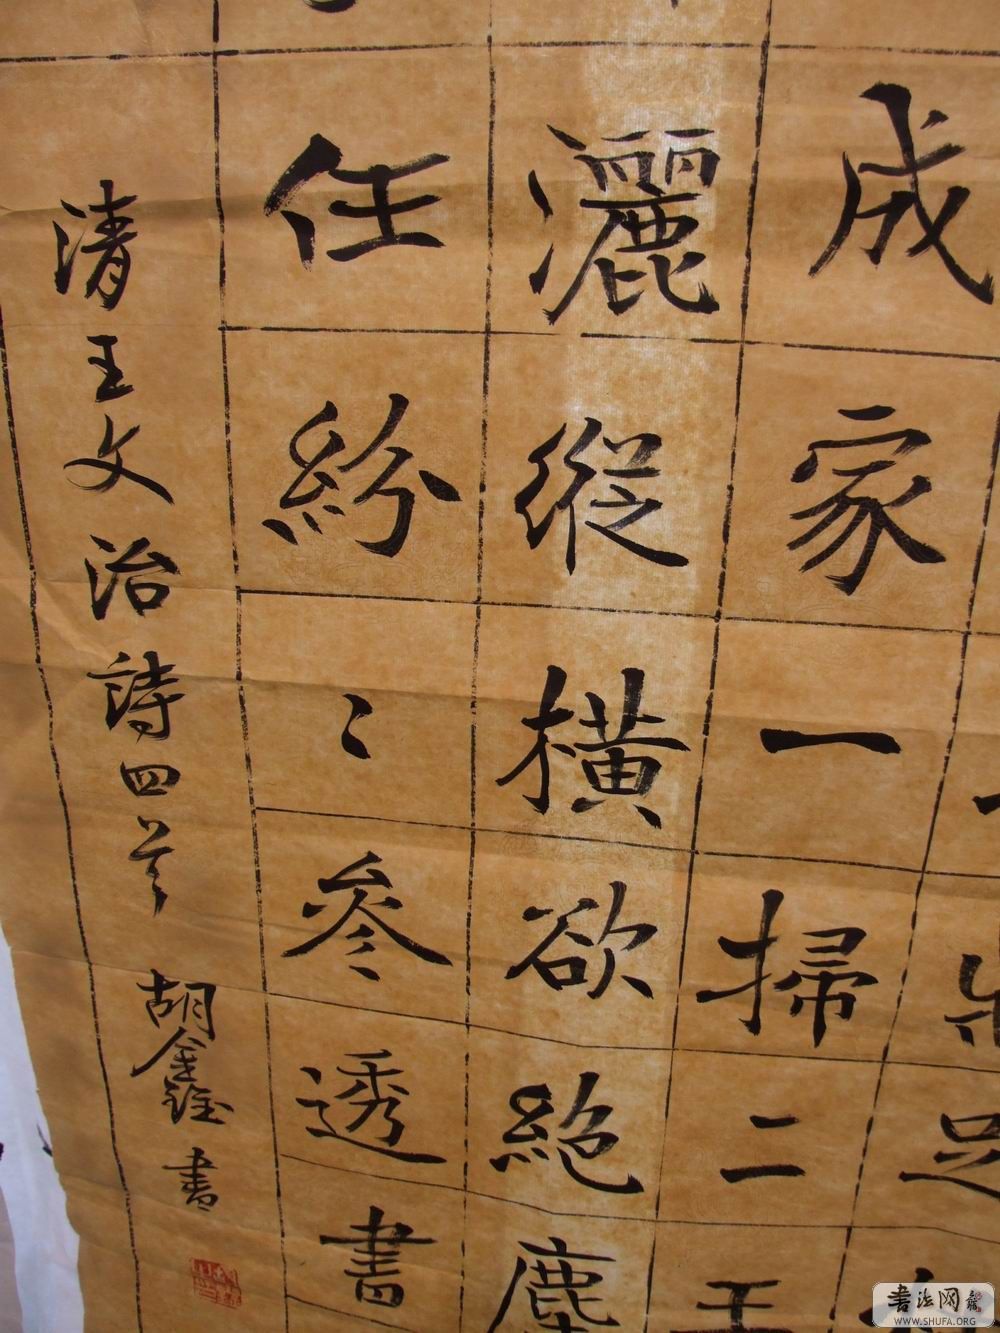 足
成家一掃二王
灑縱橫欲絕塵
任紛〻參透書
清王文治詩四首
胡金鑫書
書法网
WWW.SHUFA.ORG